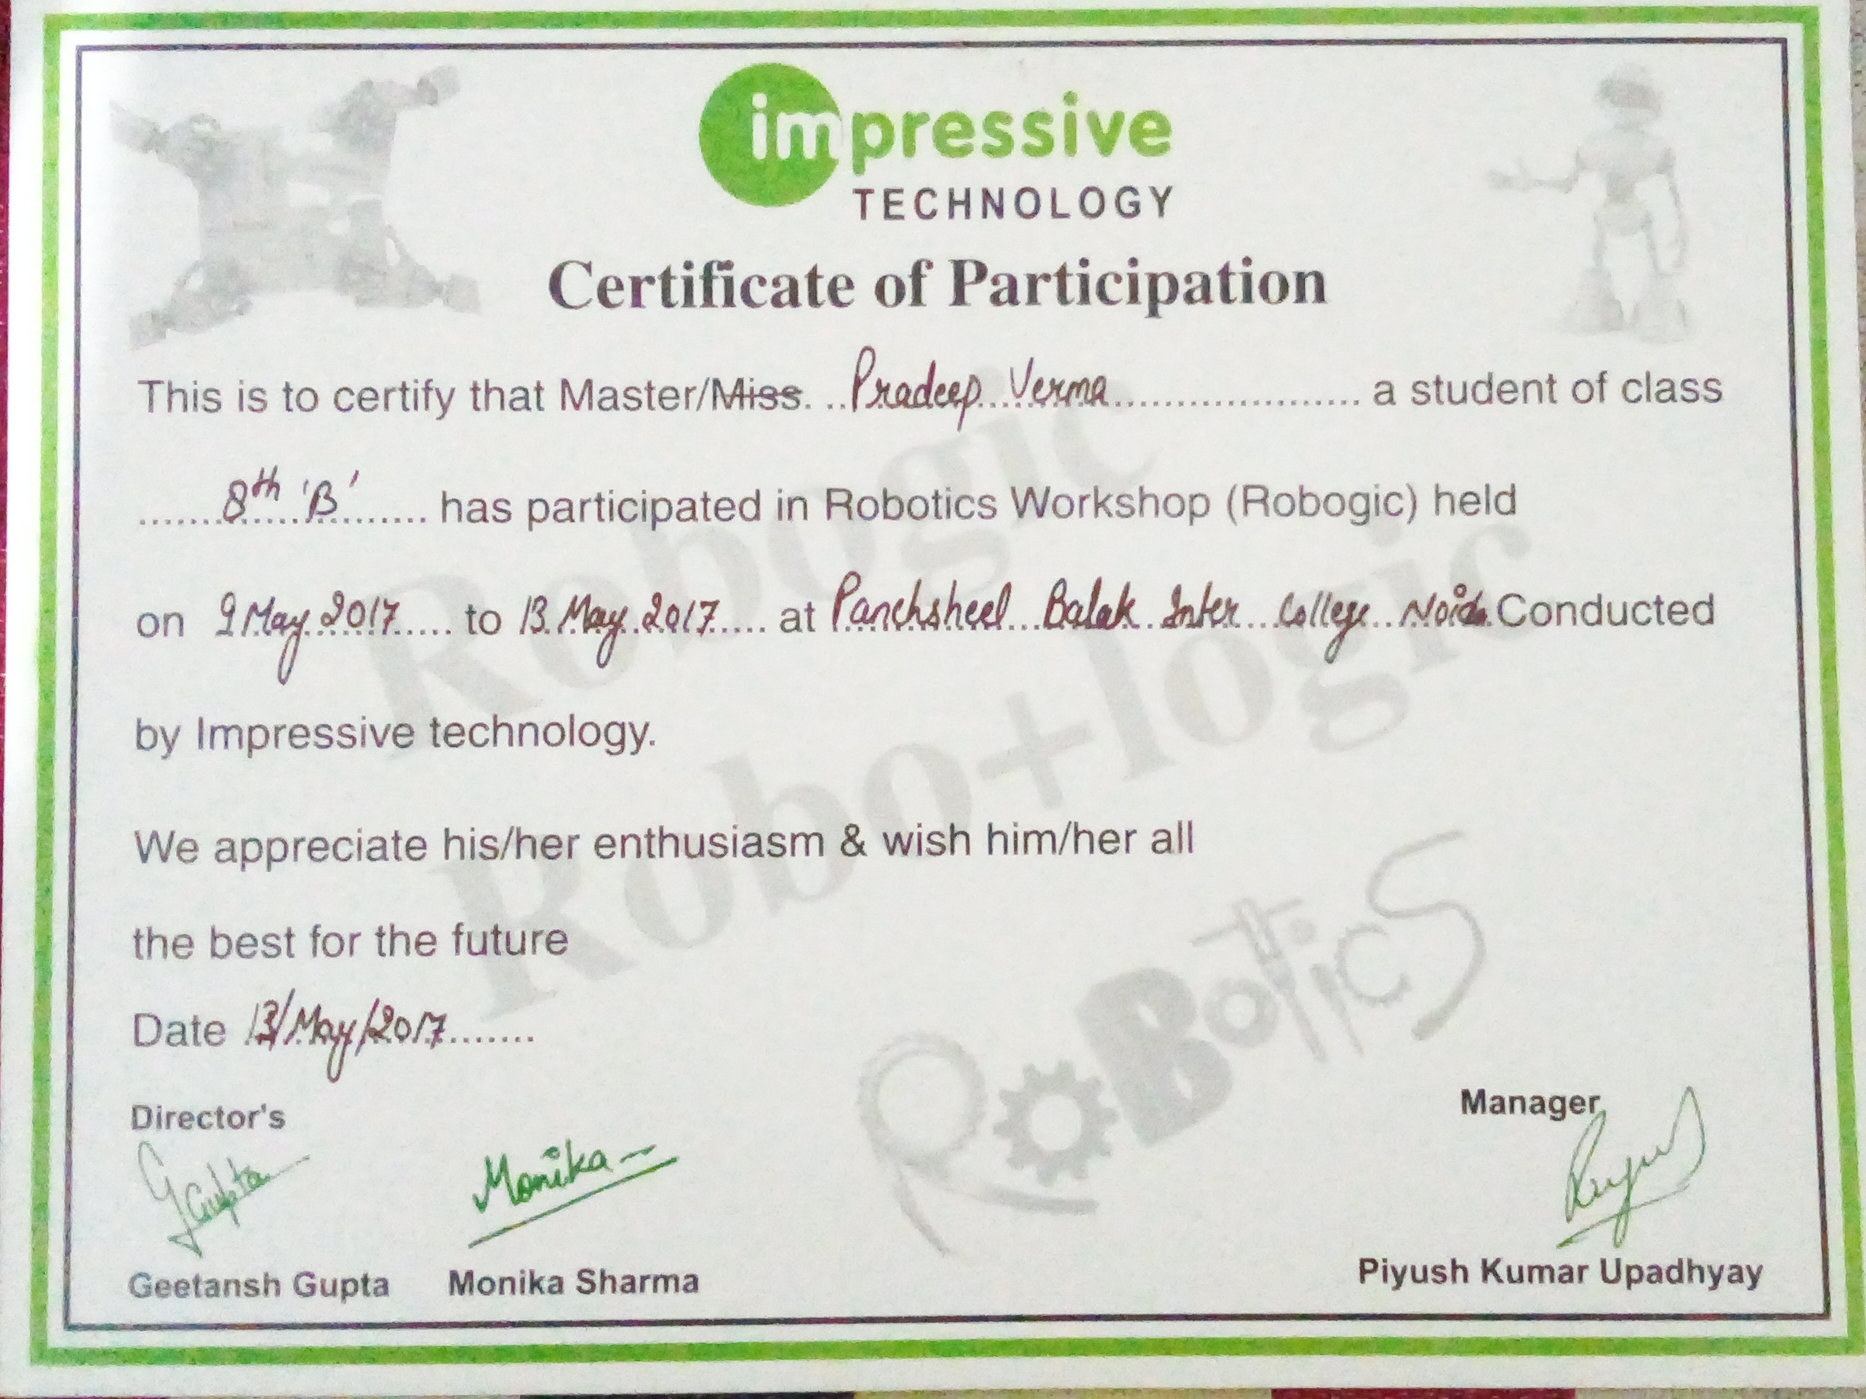 impressive
TECHNOLOGY
Certificate of Participation
This is to certify that Master/Miss. Pradeep Verma a student of class
8th 'B' has participated in Robotics Workshop (Robogic) held
on 9 May 2017 to 13 May 2017 at Panchsheel Balak Inter College Noida Conducted
by Impressive technology.
We appreciate his/her enthusiasm & wish him/her all
the best for the future
Date 13/May/2017
Robogic
Robo+logic
RoBoTicS
Director's
Manager
GGupta
Monika
Geetansh Gupta
Monika Sharma
Piyush Kumar Upadhyay